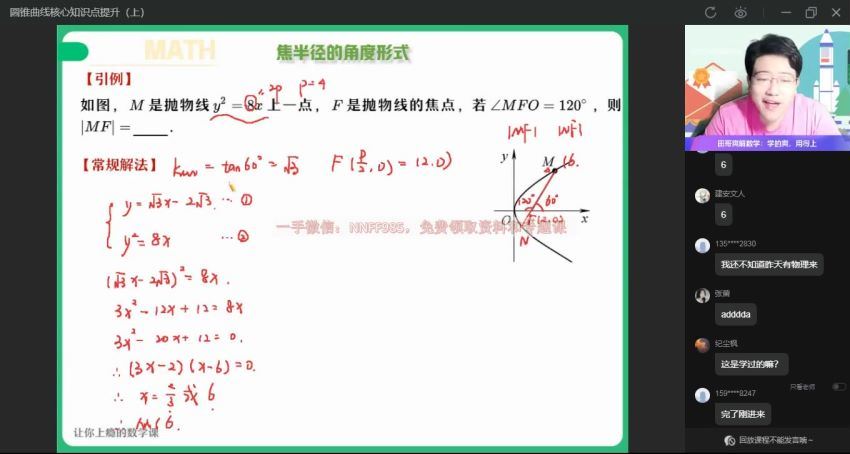 圆锥曲线核心知识点提升（上）
MATH
焦半径的角度形式
【引例】
=2p p=4
如图，M 是抛物线 y²=8x 上一点，F 是抛物线的焦点，若∠MFO=120°，则
|MF|=____．
|MF| |NF|
【常规解法】 = tan60°=√3 F(p/2,0)=(2,0)
y
M
(6,
120°
60°
O
F(2,0)
x
N
y=√3x-2√3 … ①
y²=8x … ②
一手微信：NNFF985，免费领取资料和专题课
(√3x-2√3)²=8x.
3x²-12x+12=8x
3x²-20x+12=0.
∴ (3x-2)(x-6)=0.
∴ x=2/3 或 6
让你上瘾的数学课
田哥爽解数学：学的爽，用得上
6
建安文人
6
135****2830
我还不知道昨天有物理来
张萌
adddda
纪尘枫
这是学过的嘛?
只看老师
159****8247
完了刚进来
回放课程不能发言呐~